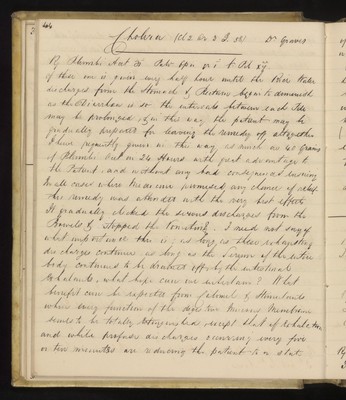 44
Cholera (Cl 2 Dr Graves
Rx Plumbi Acet ℈i Pulv Opii gr i ft Pil xij
of these one is given every half hour until the Rice Water
discharges from the Stomach & Rectum began to diminish
as the Diarrhoea is so the intervals between each Pill
may be prolonged & in this way the patient may be
gradually prepared for leaving the remedy off altogether
I have frequently given in this way as much as 40 Grains
of Plumbi Acet in 24 Hours with great advantage to
the Patient, and without any bad consequences ensuing
In all cases where Medicine promised any chance of relief
this remedy was attended with the very best effects
It gradually checked the serous discharges from the
Bowels & stopped the Vomiting. I need not say of
what importance this is; as long as these exhausting
discharges continue as long as the Serum of the entire
body continues to be drained off by the intestinal
exhalants, what hope can we entertain? What
benefit can be expected from Calomel & Stimulants
where every function of the Mucous Membrane
seems to be totally extinguished except that of exhalation
and while profuse discharges occurring every five
or ten minutes are reducing the patient to a state